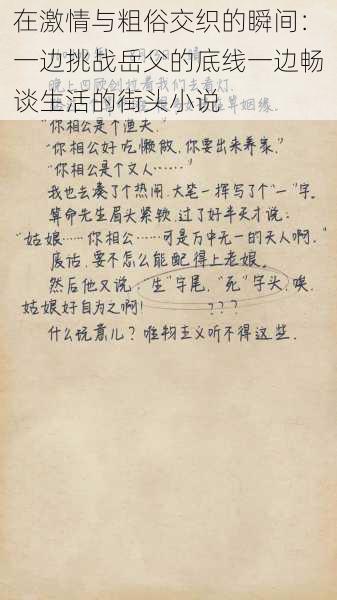 在激情与粗俗交织的瞬间：
一边挑战岳父的底线一边畅
谈生活的街头小说
晚上四顾剑拉着我们去看灯
算姻缘.
"你相公是个渔夫."
"你相公好吃懒做,你要出来养家."
"你相公是个文人……"
我也去凑了个热闹.大笔一挥写了个"一"字。
算命先生眉头紧锁,过了好半天才说:
"姑娘……你相公……可是万中无一的天人啊."
废话,要不怎么能配得上老娘。
然后他又说:"生"字尾,"死"字头,唉,
姑娘好自为之啊! ???
什么玩意儿?唯物主义听不得这些.